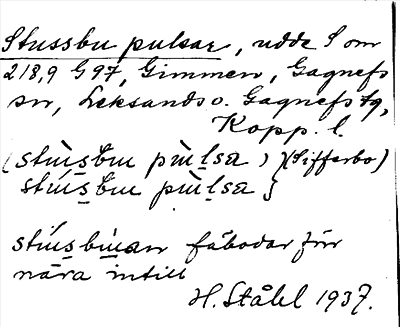 Stussbu pulsar, udde S om
218,9 G97, Gimmen, Gagnefs
sn, Leksands o. Gagnefs tg,
Kopp. l.
(stùs̲ƀu pùl̲sa) } (Sifferbo)
stùs̲ƀu pùl̲sa }
stús̲bùan fäbodar för
nära intill
H. Ståhl 1937.